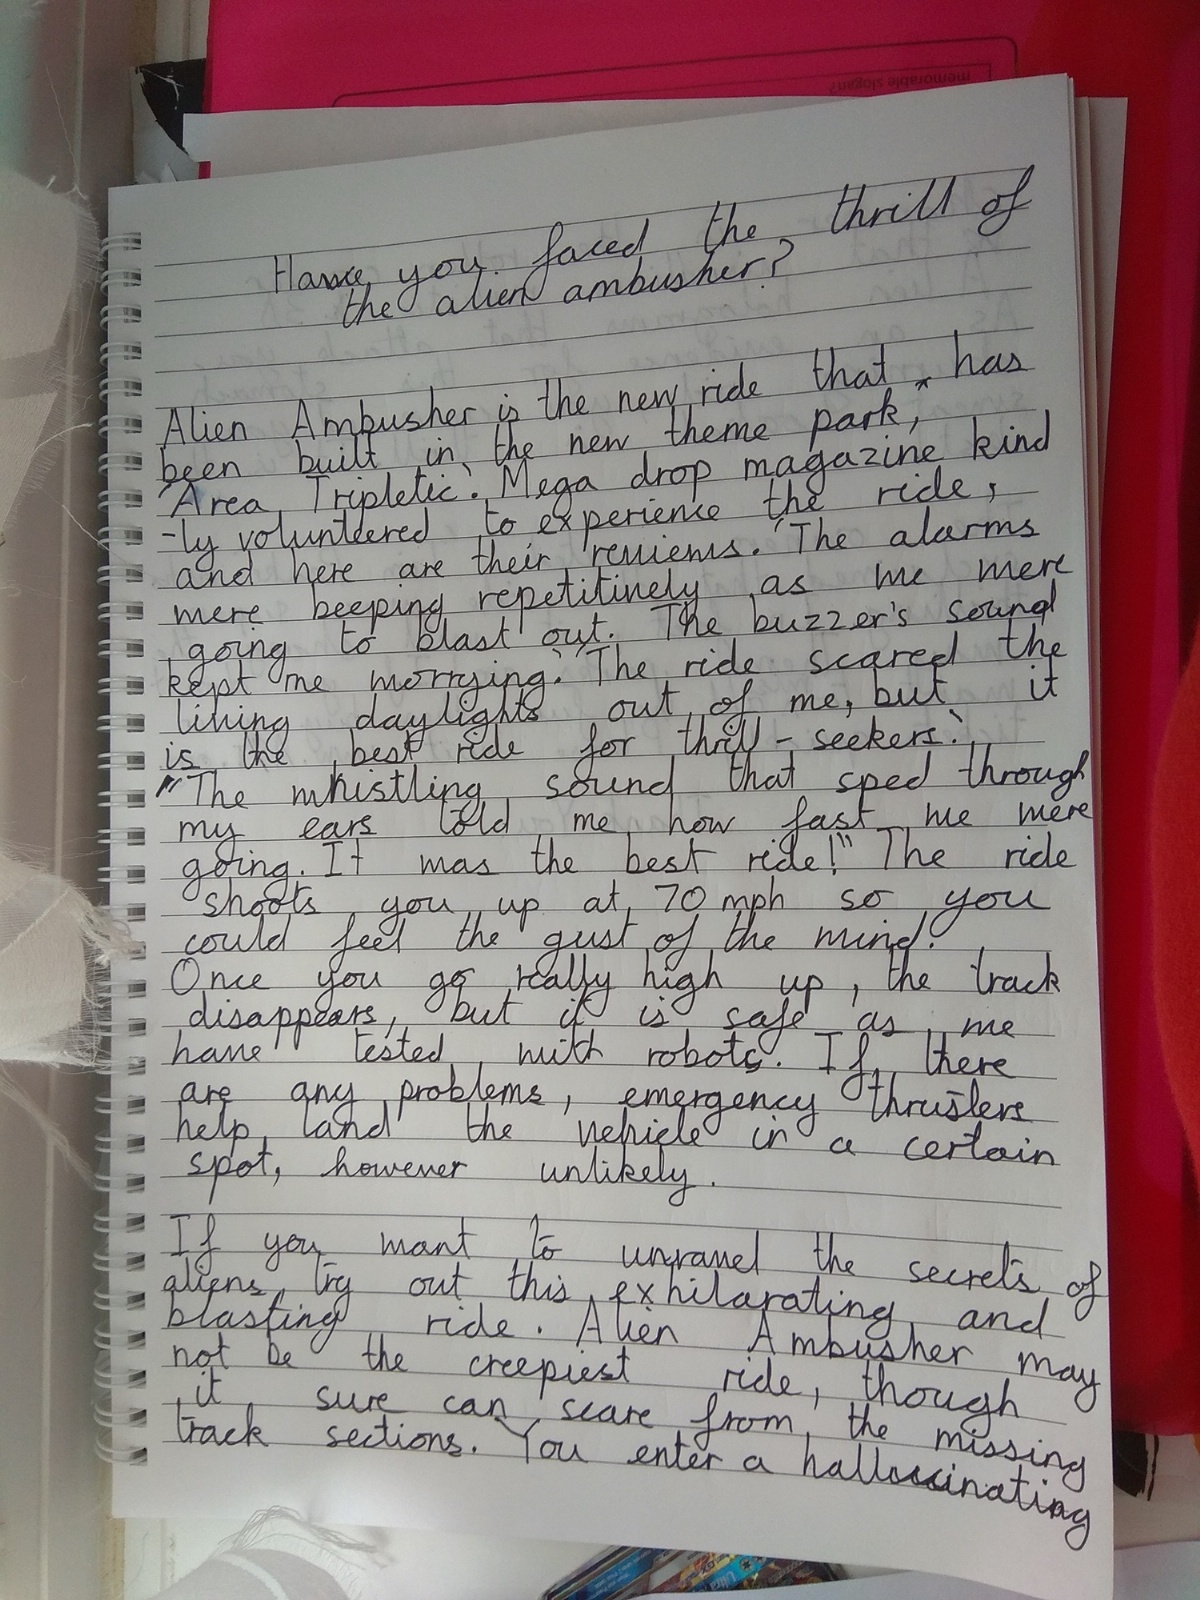 memorable slogan?
Have you faced the thrill of
the alien ambusher?
Alien Ambusher is the new ride that * has
been built in the new theme park,
'Area Tripletic'. Mega drop magazine kind
-ly volunteered to experience the ride,
and here are their reviews. 'The alarms
were beeping repetitively as we were
going to blast out. The buzzer's sound
kept me worrying.' 'The ride scared the
living daylights out of me, but it
is the best ride for thrill-seekers.'
"The whistling sound that sped through
my ears told me how fast we were
going. It was the best ride!" The ride
shoots you up at 70 mph so you
could feel the gust of the wind.
Once you go really high up, the track
disappears, but it is safe as we
have tested with robots. If there
are any problems, emergency thrusters
help land the vehicle in a certain
spot, however unlikely.
If you want to unravel the secrets of
aliens, try out this exhilarating and
blasting ride. Alien Ambusher may
not be the creepiest ride, though
it sure can scare from the missing
track sections. You enter a halluccinating